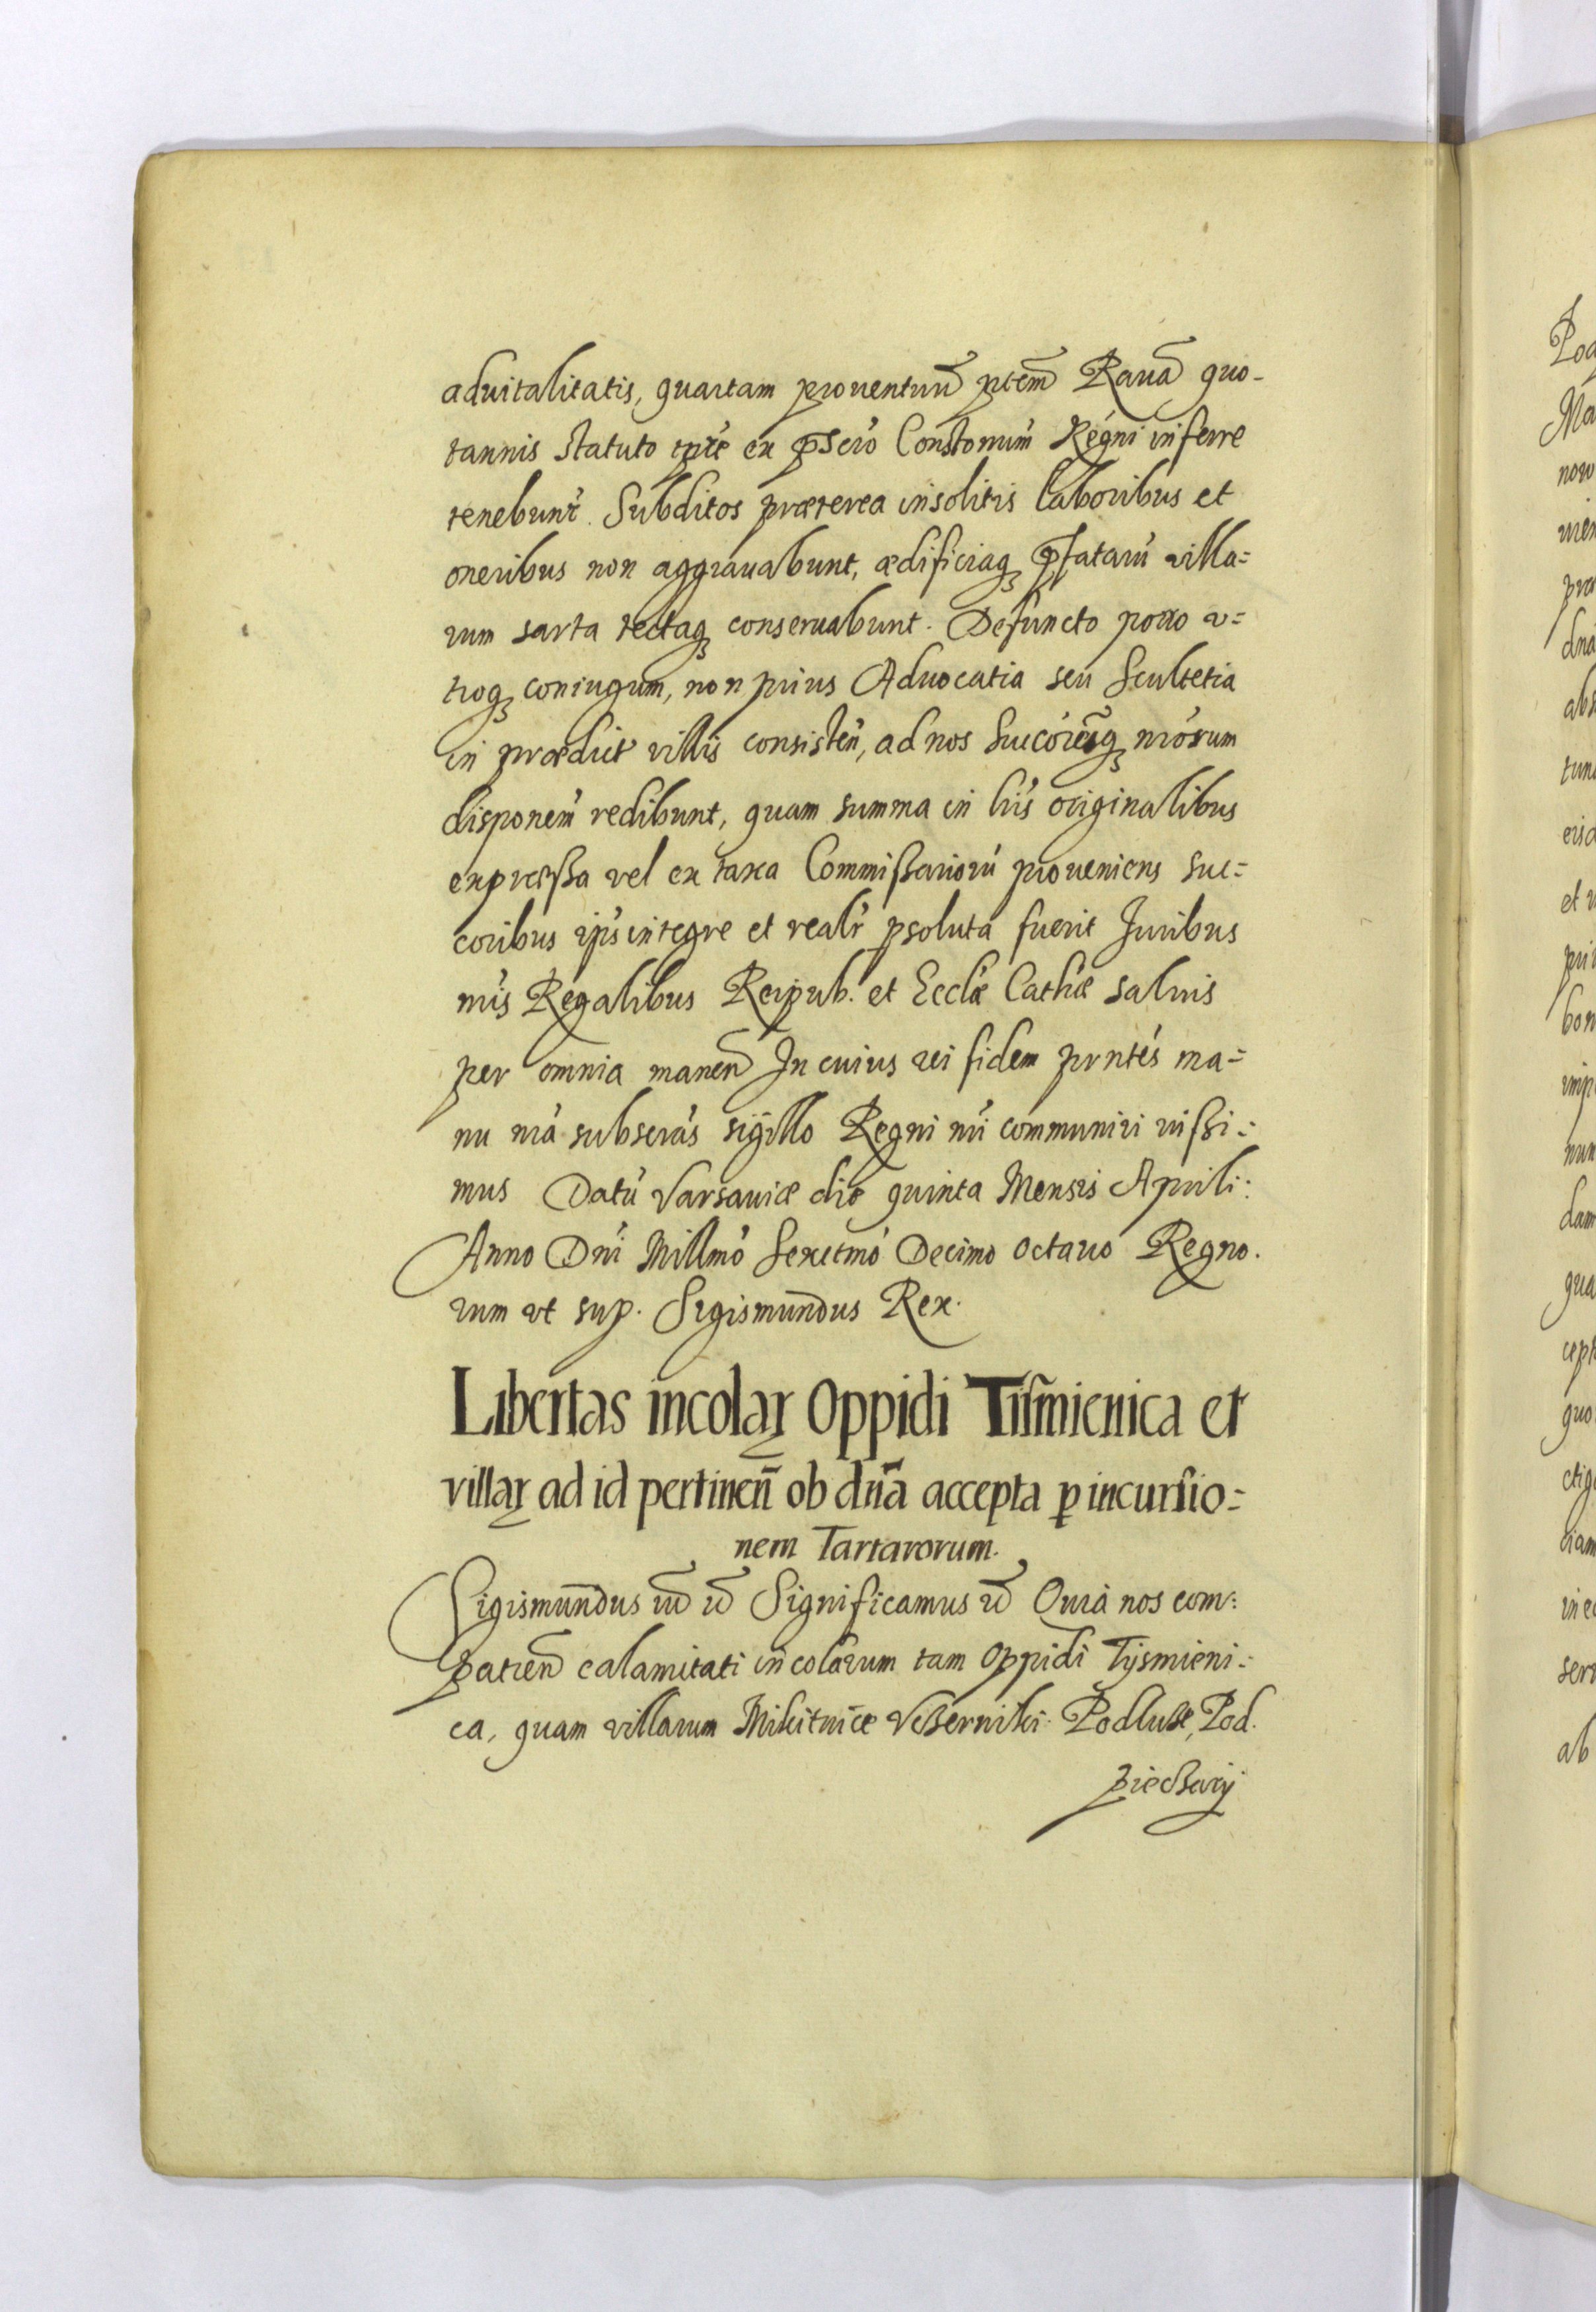 aduitalitatis, quartam prouentuũ ptem̃ Rauã quo-
tannis statuto tpre ex pscro Constonum Regni inferre
tenebunt̃. Subditos præterea insolitis laboribus et
oneribus non aggrauabunt, ædificiaqꝫ pfatarũ villa=
rum sarta tectaqꝫ conseruabunt. Defuncto porro v=
troqꝫ coniugum, non prius Aduocatia seu Scultetia
in prædict villis consisteñ, ad nos Succorũqꝫ nrorum
disponem redibunt, quam summa in lris originalibus
expreßa vel ex taxa Commißariorũ proueniens suc=
coribus ipis integre et realr psoluta fuerit Iuribus
nris Regalibus Reipub. et Ecclæ Cathæ saluis
per omnia maneñ In cuius rei fidem prntes ma=
nu nra subscras sigillo Regni nri communiri iußi=
mus Datũ Varsauiæ die quinta Mensis Aprili:
Anno Dni Millmo Sexctmo Decimo octauo Regno.
rum vt sup. Sigismundus Rex.
Libertas incolaꝝ Oppidi Tismienica et
villaꝝ ad id pertineñ ob dña accepta ꝑ incursio=
nem Tartarorum.
Sigismundus iũ ũ Significamus ũ Quia nos com=
patieñ calamitati incolarum tam oppidi Tysmieni=
ca, quam villarum Mikitnice Veßerniki Podluße, Pod.
pieczarij